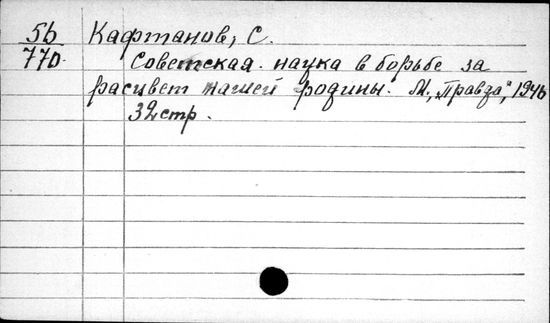 5б Кафтанов, С.
770. Советская наука в борьбе за
расцвет нашей родины. М., „Правда“, 1946
32 стр.